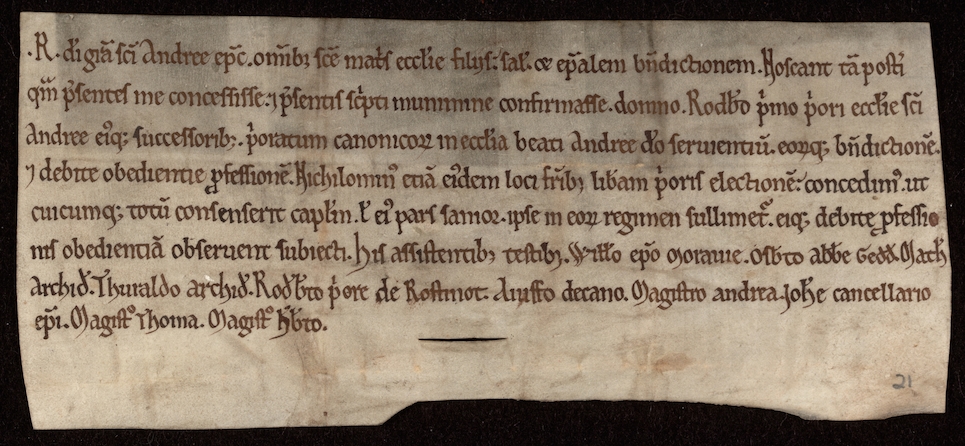 .R. di grā sci Andree epc. omib; sce mat's ecclie filijs: sal'. ⁊ epalem bndictionem. Noscant tā post'i
qm p'sentes me concessisse: ⁊ p'sentis sc'pti munimine confirmasse. domno. Rodb'to p'mo p'ori ecclie sci
Andree ei'q; successorib;. p'oratum canonicoꝝ in ecclia beati Andree d'o seruientiū. eoꝝq; bndictionē.
⁊ debite obedientie ꝓfessionē. Nichilomin' etiā ei'dem loci frib; lib'am p'oris electionē: concedim'. ut
cuicumq; totū consenserit capl'm. l' ei' pars sanior. ipse in eoꝝ regimen sullimet'. eiq; debitę ꝓfessio
nis obedientiā obseruent subiecti. His assistentib; testib;. Will'o ep'o Morauie. Osb'to abb'e Gedd. Math'
Archid'. Thuraldo archid'. Rodb'to p'ore de Rostinot. Aiulfo decano. Magistro andrea. Joh'e cancellario
ep'i. Magist'o Thoma. Magist'o h'b'to.
21